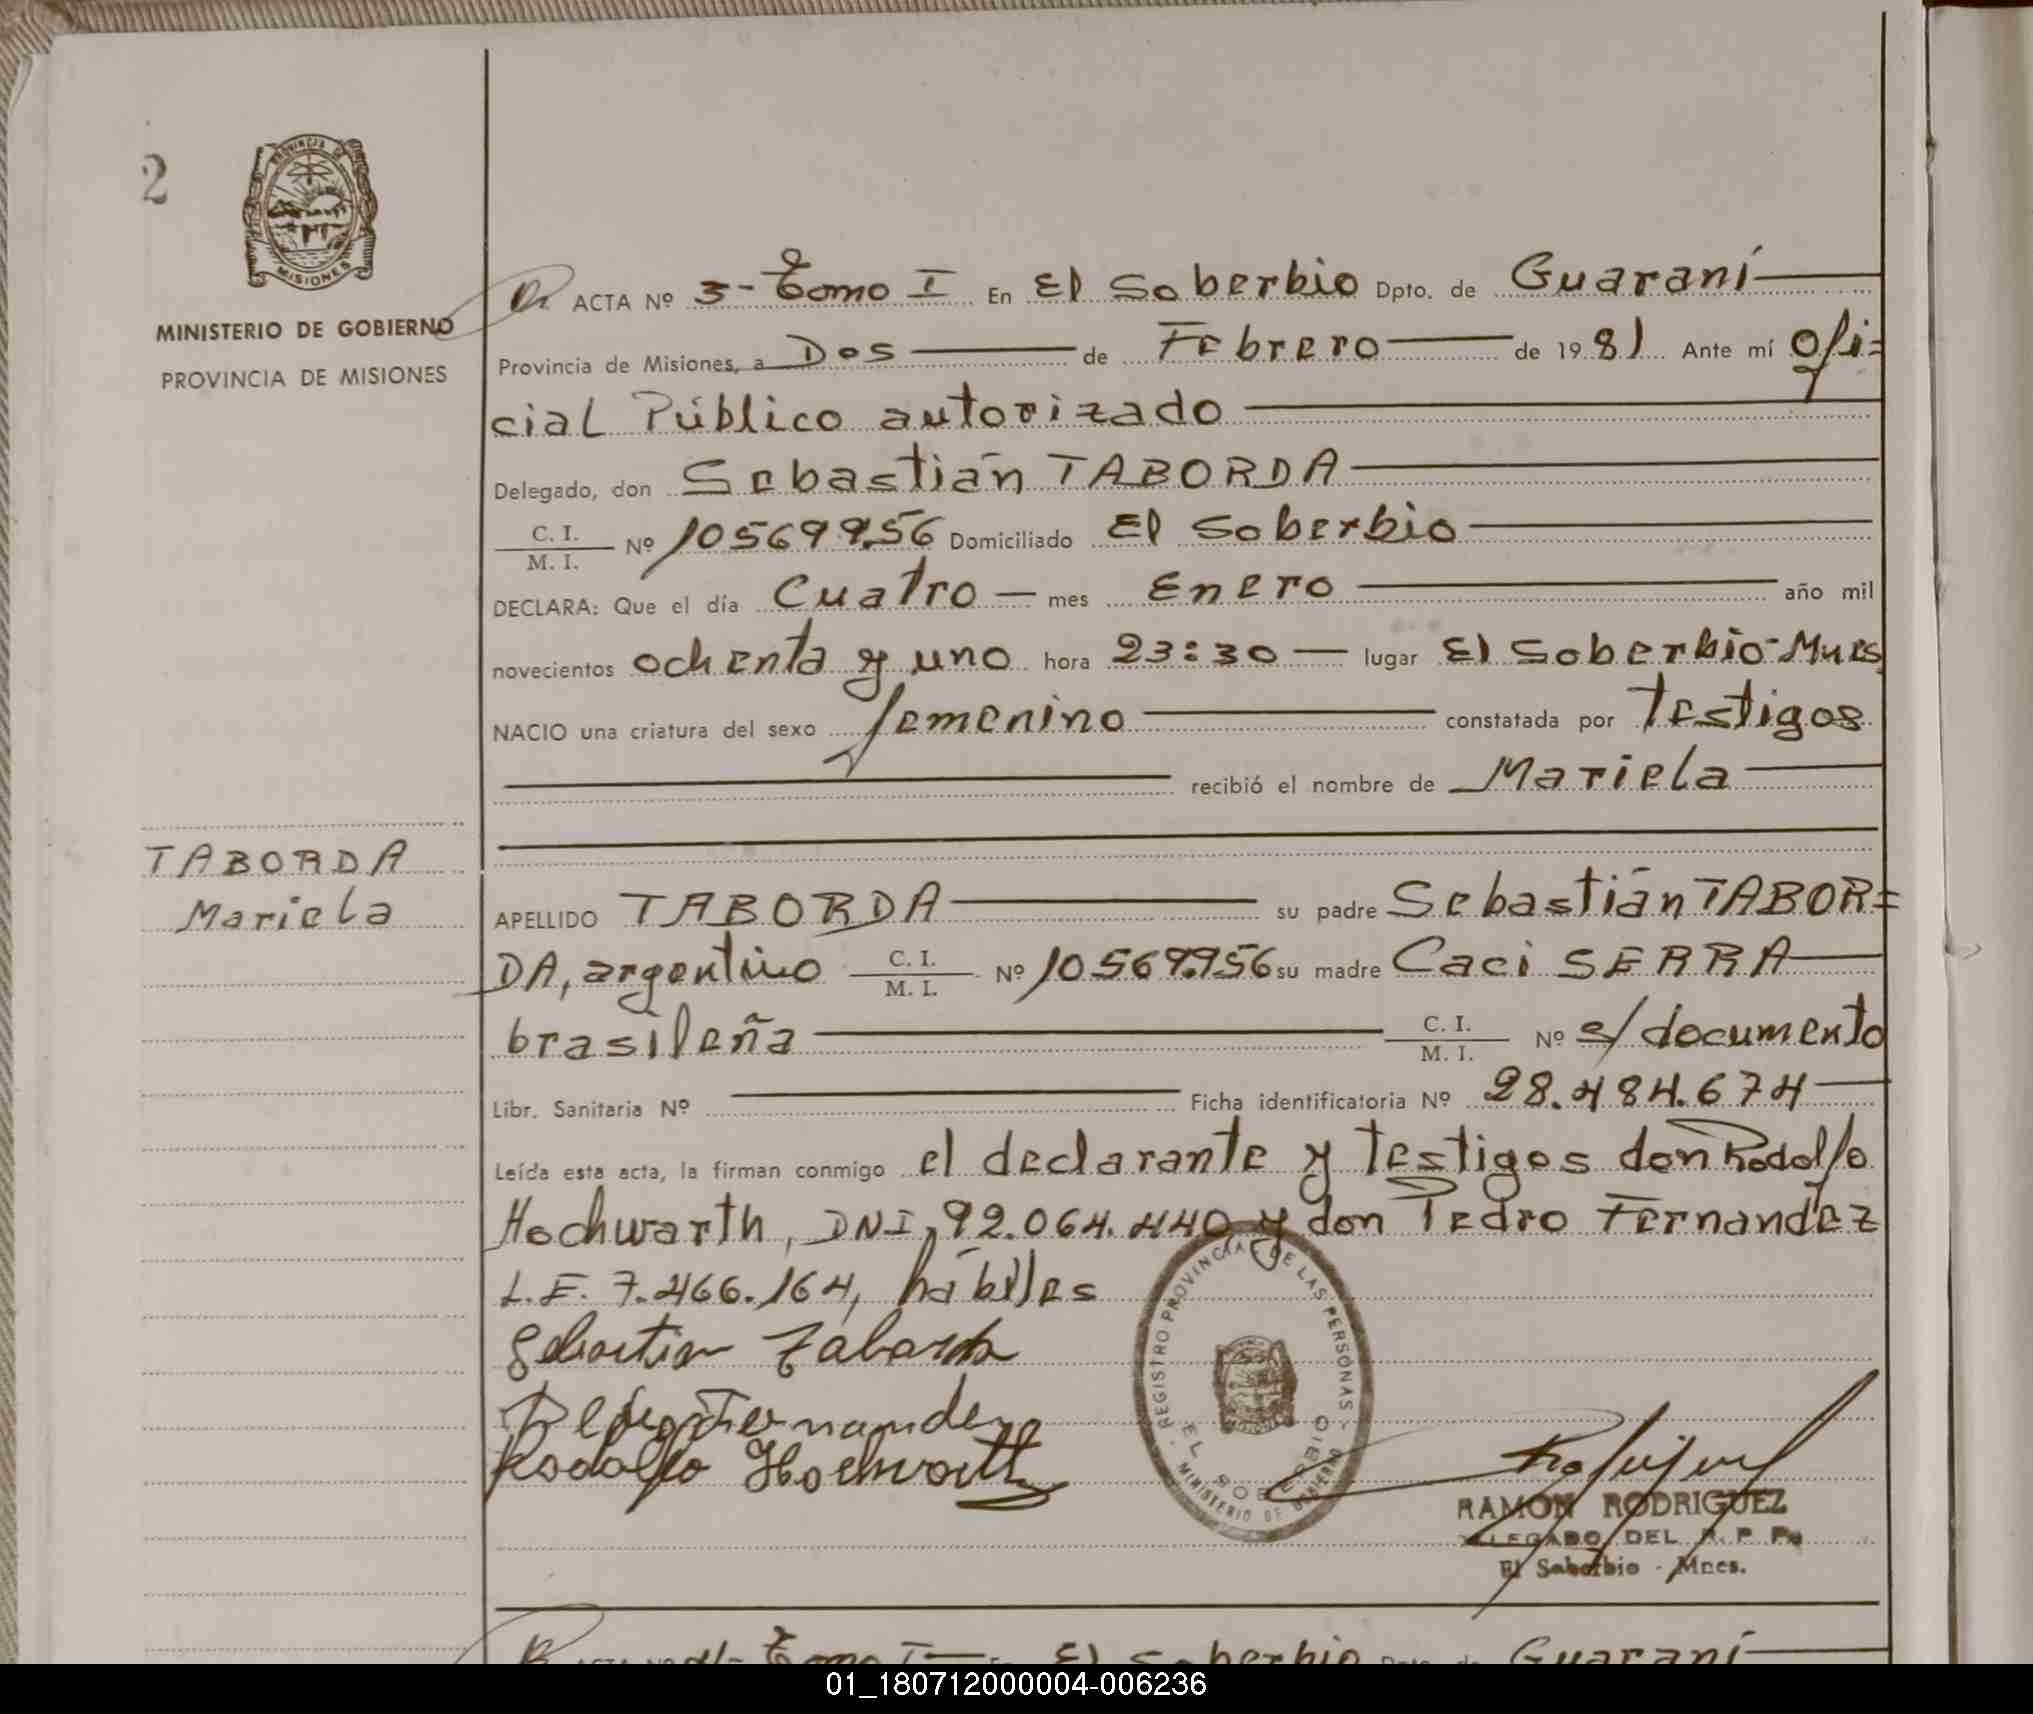 2
PROVINCIA DE
MISIONES
MINISTERIO DE GOBIERNO
PROVINCIA DE MISIONES
ACTA Nº 3- Tomo I En El Soberbio Dpto. de Guaraní
Provincia de Misiones, a Dos de Febrero de 1981 Ante mí Ofi=
cial Público autorizado
Delegado, don Sebastián TABORDA
C. I.
M. I. Nº 10569956 Domiciliado El Soberbio
DECLARA: Que el día Cuatro mes Enero año mil
novecientos ochenta y uno hora 23:30 lugar El Soberbio-Mnes
NACIO una criatura del sexo femenino constatada por Testigos
recibió el nombre de Mariela
TABORDA
Mariela
APELLIDO TABORDA su padre Sebastián TABOR=
DA, argentino C. I. M. I. Nº 10.569.956 su madre Caci SERRA
brasileña C. I. M. I. Nº s/documento
Libr. Sanitaria Nº Ficha identificatoria Nº 28.484.674
Leída esta acta, la firman conmigo el declarante y testigos don Rodolfo
Hochwarth, DNI, 92.064.440 y don Pedro Fernandez
L.E. 7.466.164, hábiles
Sebastian Taborda
Fernandez
Rodolfo Hochwarth
REGISTRO PROVINCIAL DE LAS PERSONAS
EL SOBERBIO
MINISTERIO DE GOBIERNO
RAMON RODRIGUEZ
DELEGADO DEL R. P. P.
El Soberbio - Mnes.
Tomo I El Soberbio Guaraní
01_180712000004-006236